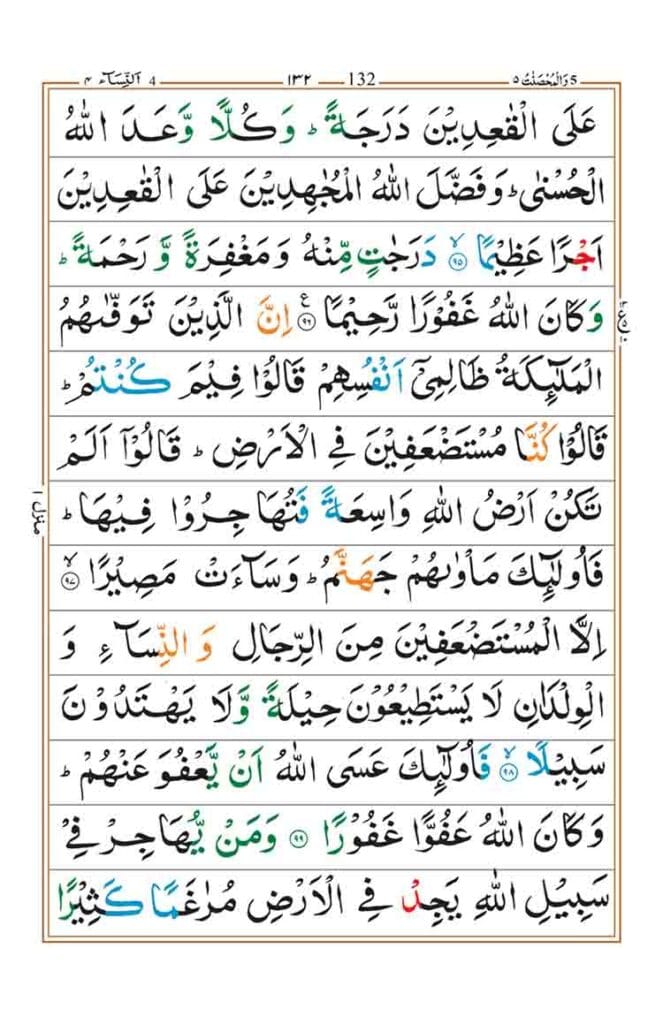 النِّسَآء ٤ 4 ١٣٢ 132 وَالْمُحْصَنٰتُ ٥ 5
عَلَى الْقٰعِدِيْنَ دَرَجَةً ؕ وَكُلًّا وَّعَدَ اللّٰهُ
الْحُسْنٰى ؕ وَفَضَّلَ اللّٰهُ الْمُجٰهِدِيْنَ عَلَى الْقٰعِدِيْنَ
اَجْرًا عَظِيْمًا ۙ ﴿٩٥﴾ دَرَجٰتٍ مِّنْهُ وَمَغْفِرَةً وَّرَحْمَةً ؕ
وَكَانَ اللّٰهُ غَفُوْرًا رَّحِيْمًا ﴿٩٦﴾ ع اِنَّ الَّذِيْنَ تَوَفّٰىهُمُ
الْمَلٰٓئِكَةُ ظَالِمِىْٓ اَنْفُسِهِمْ قَالُوْا فِيْمَ كُنْتُمْ ؕ
قَالُوْا كُنَّا مُسْتَضْعَفِيْنَ فِى الْاَرْضِ ؕ قَالُوْٓا اَلَمْ
تَكُنْ اَرْضُ اللّٰهِ وَاسِعَةً فَتُهَاجِرُوْا فِيْهَا ؕ
فَاُولٰٓئِكَ مَاْوٰىهُمْ جَهَنَّمُ ؕ وَسَآءَتْ مَصِيْرًا ۙ ﴿٩٧﴾
اِلَّا الْمُسْتَضْعَفِيْنَ مِنَ الرِّجَالِ وَالنِّسَآءِ وَ
الْوِلْدَانِ لَا يَسْتَطِيْعُوْنَ حِيْلَةً وَّلَا يَهْتَدُوْنَ
سَبِيْلًا ۙ ﴿٩٨﴾ فَاُولٰٓئِكَ عَسَى اللّٰهُ اَنْ يَّعْفُوَ عَنْهُمْ ؕ
وَكَانَ اللّٰهُ عَفُوًّا غَفُوْرًا ﴿٩٩﴾ وَمَنْ يُّهَاجِرْ فِىْ
سَبِيْلِ اللّٰهِ يَجِدْ فِى الْاَرْضِ مُرٰغَمًا كَثِيْرًا
منزل ١